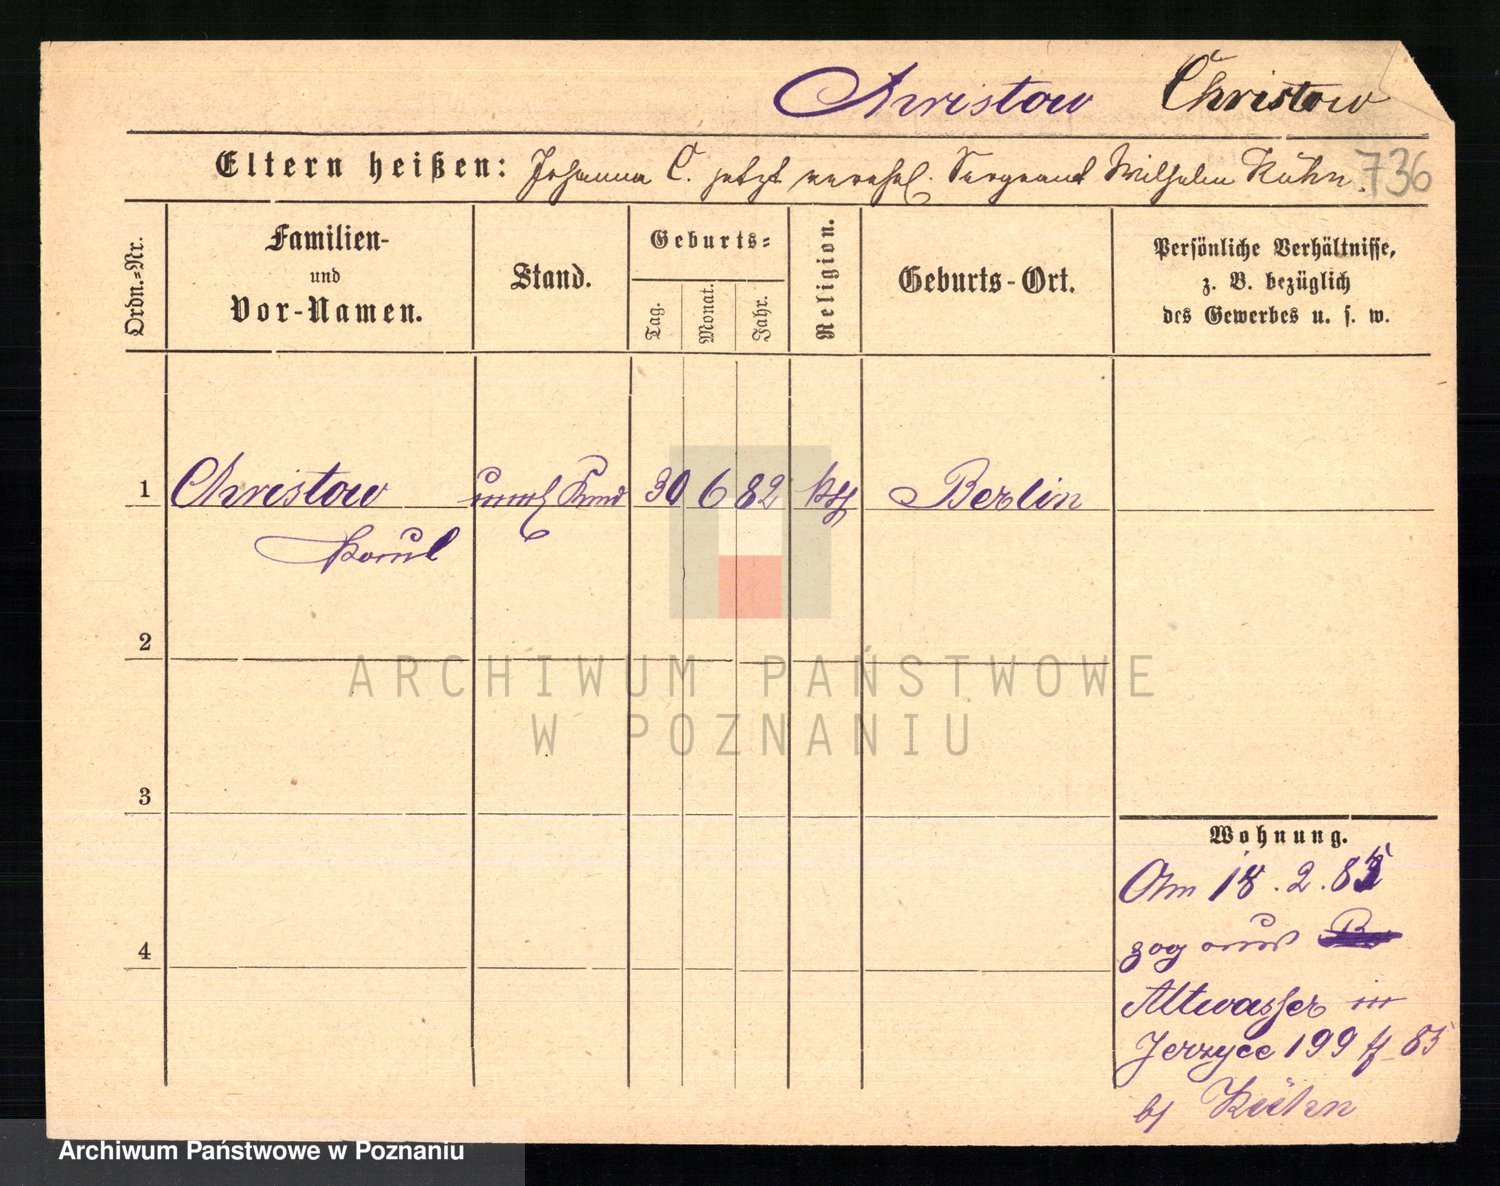 Christow Christow
Eltern heißen: Johanna C. jetzt verehel. Sergeant Wilhelm Kühn. 736
Ordn.=Nr.
Familien-
und
Vor-Namen.
Stand.
Geburts=
Tag.
Monat.
Jahr.
Religion.
Geburts-Ort.
Persönliche Verhältnisse,
z. B. bezüglich
des Gewerbes u. s. w.
1 Christow unehl Kind 30 6 82 kth Berlin
Paul
2
3
4
Wohnung.
Am 18.2.85
zog aus
Altwasser in
Jerzyce 199 85
bj Kühn
ARCHIWUM PAŃSTWOWE
W POZNANIU
Archiwum Państwowe w Poznaniu